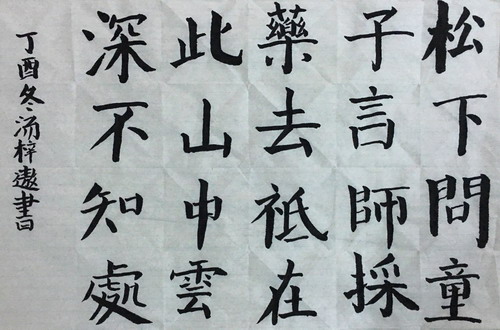 松下問童
子言師採
藥去祗在
此山中雲
深不知處
丁酉冬汤梓遨書